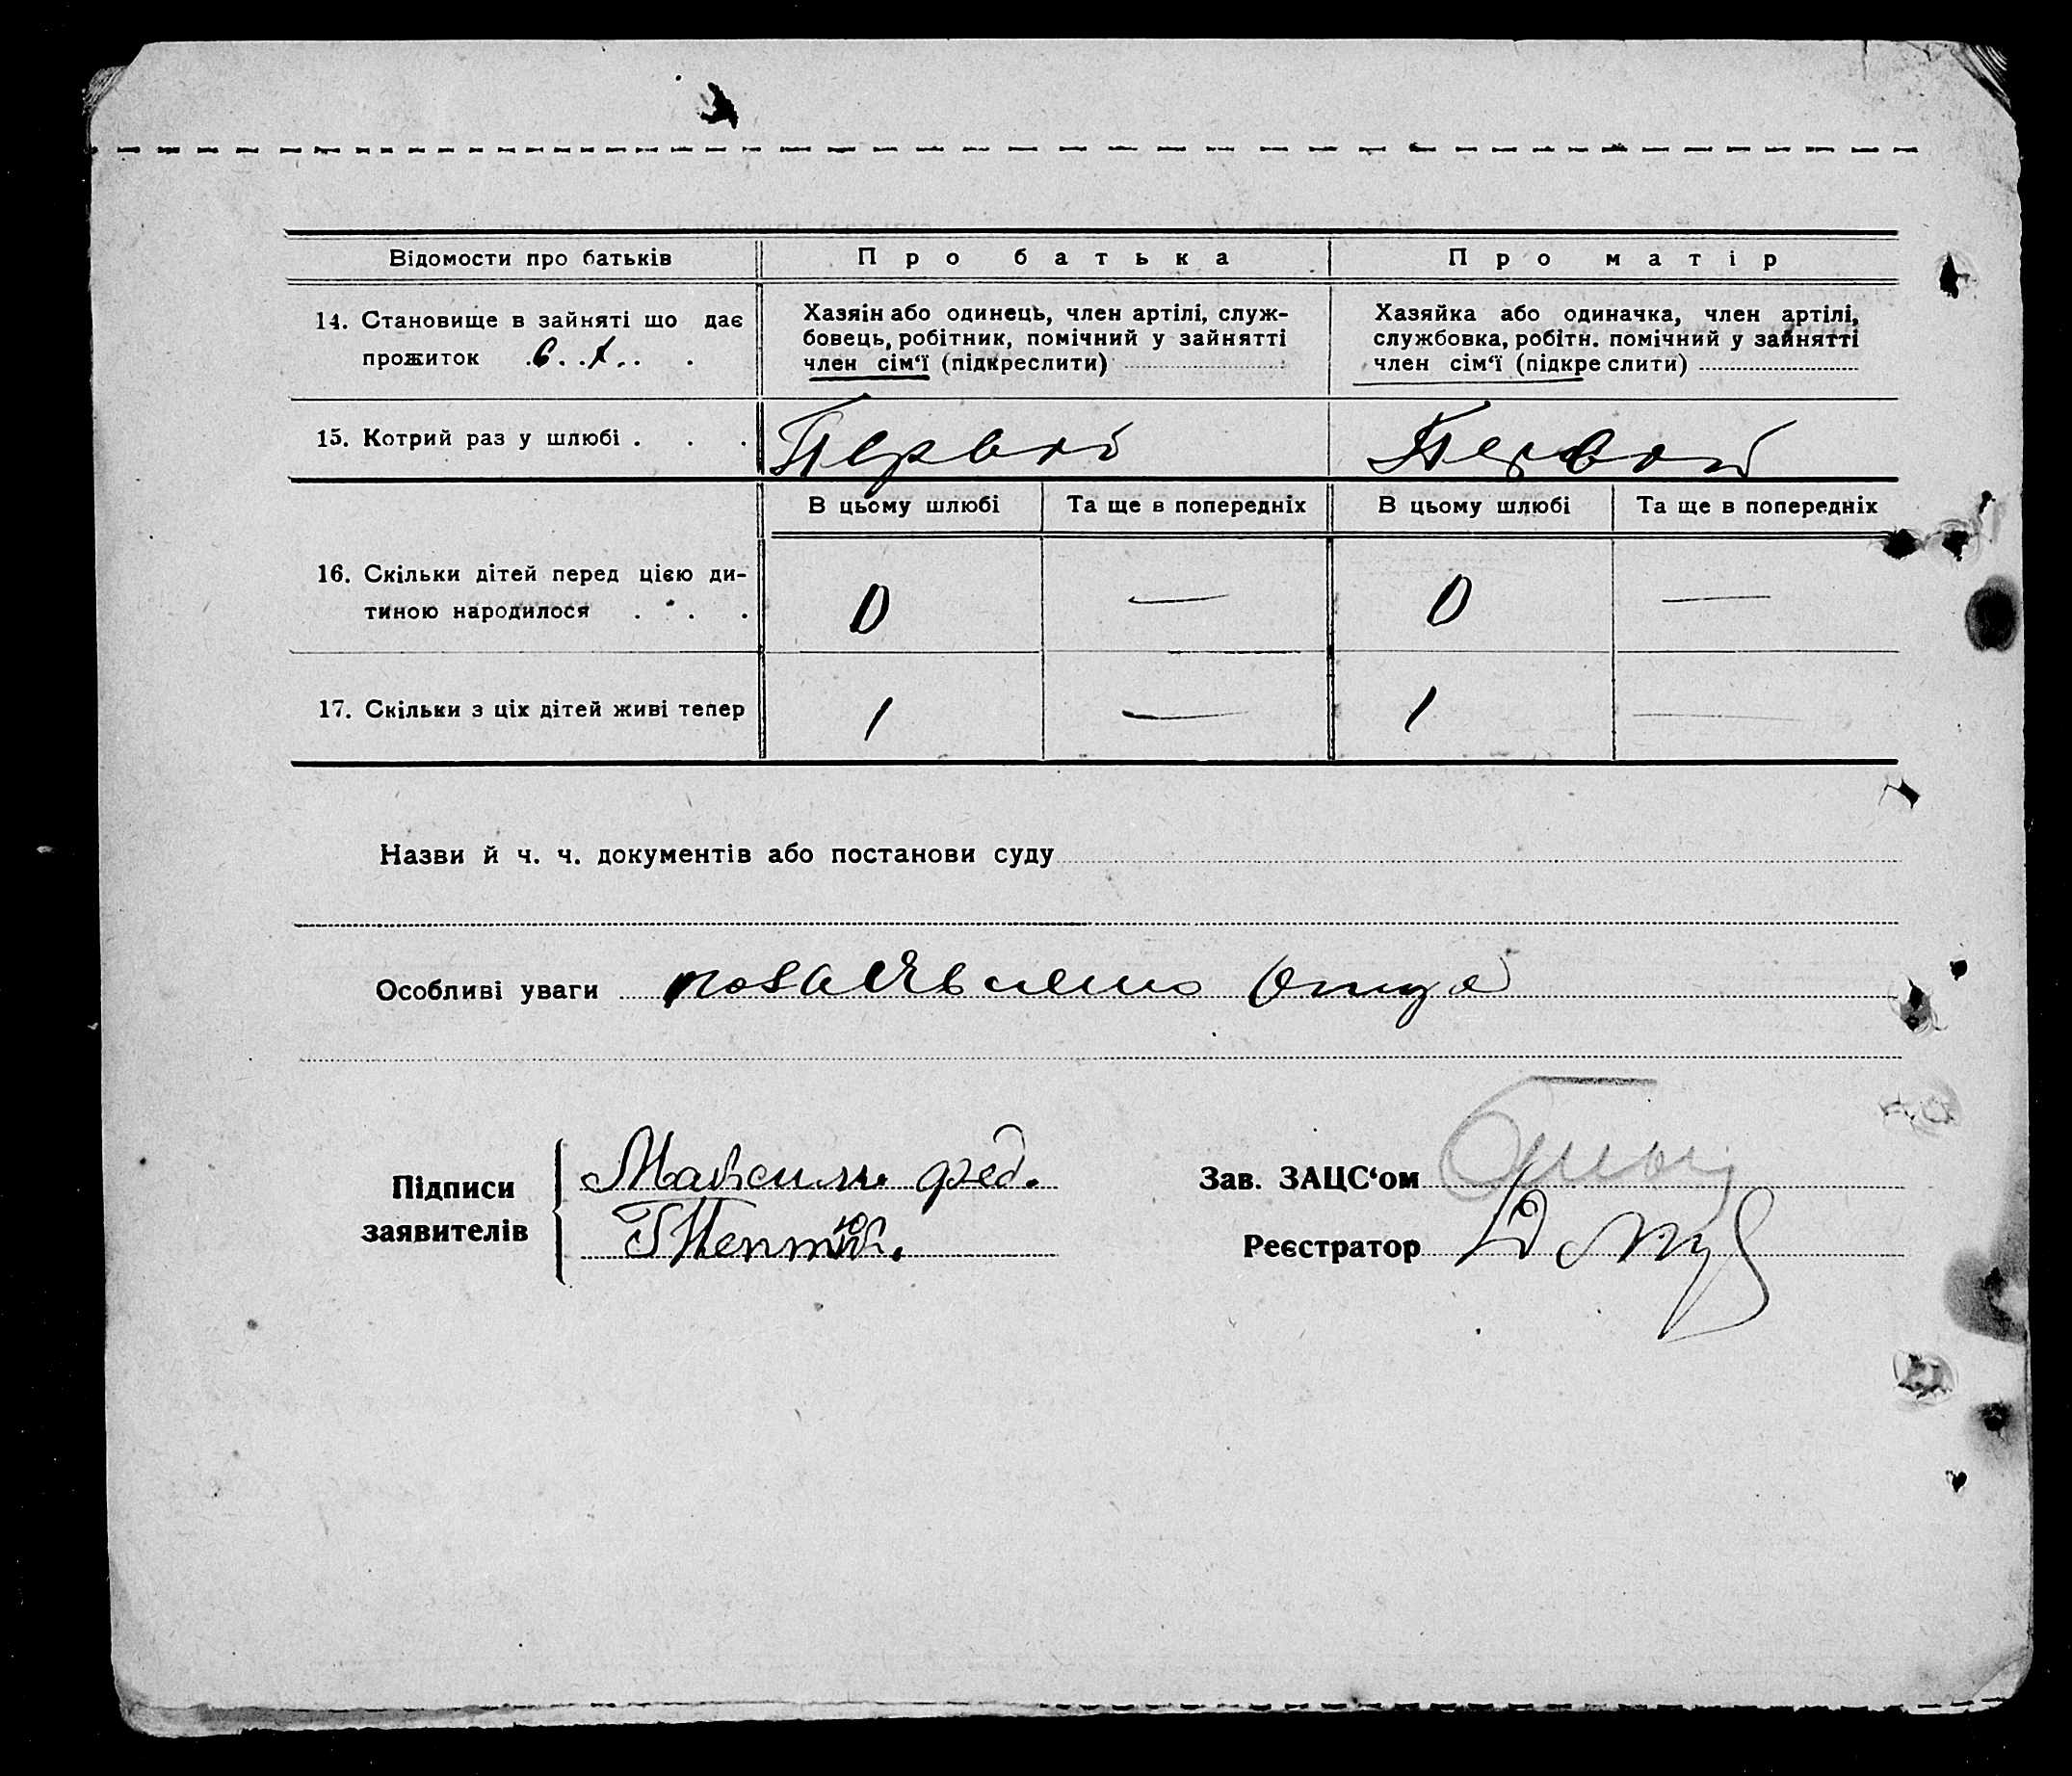 Відомости про батьків
Про батька
Про матір
14. Становище в зайняті що дає
прожиток с. х.
Хазяін або одинець, член артілі, служ-
бовець, робітник, помічний у зайнятті
член сім‘ї (підкреслити)
Хазяйка або одиначка, член артілі,
службовка, робітн. помічний у зайнятті
член сім‘ї (підкреслити)
15. Котрий раз у шлюбі . . .
Первой
Первой
В цьому шлюбі
Та ще в попередніх
В цьому шлюбі
Та ще в попередніх
16. Скільки дітей перед цією ди-
тиною народилося . . .
0
—
0
—
17. Скільки з ціх дітей живі тепер
1
—
1
—
Назви й ч. ч. документів або постанови суду
Особливі уваги по заявлению отца
Підписи
заявителів
Максим. фед.
Зав. ЗАЦС‘ом
Реєстратор